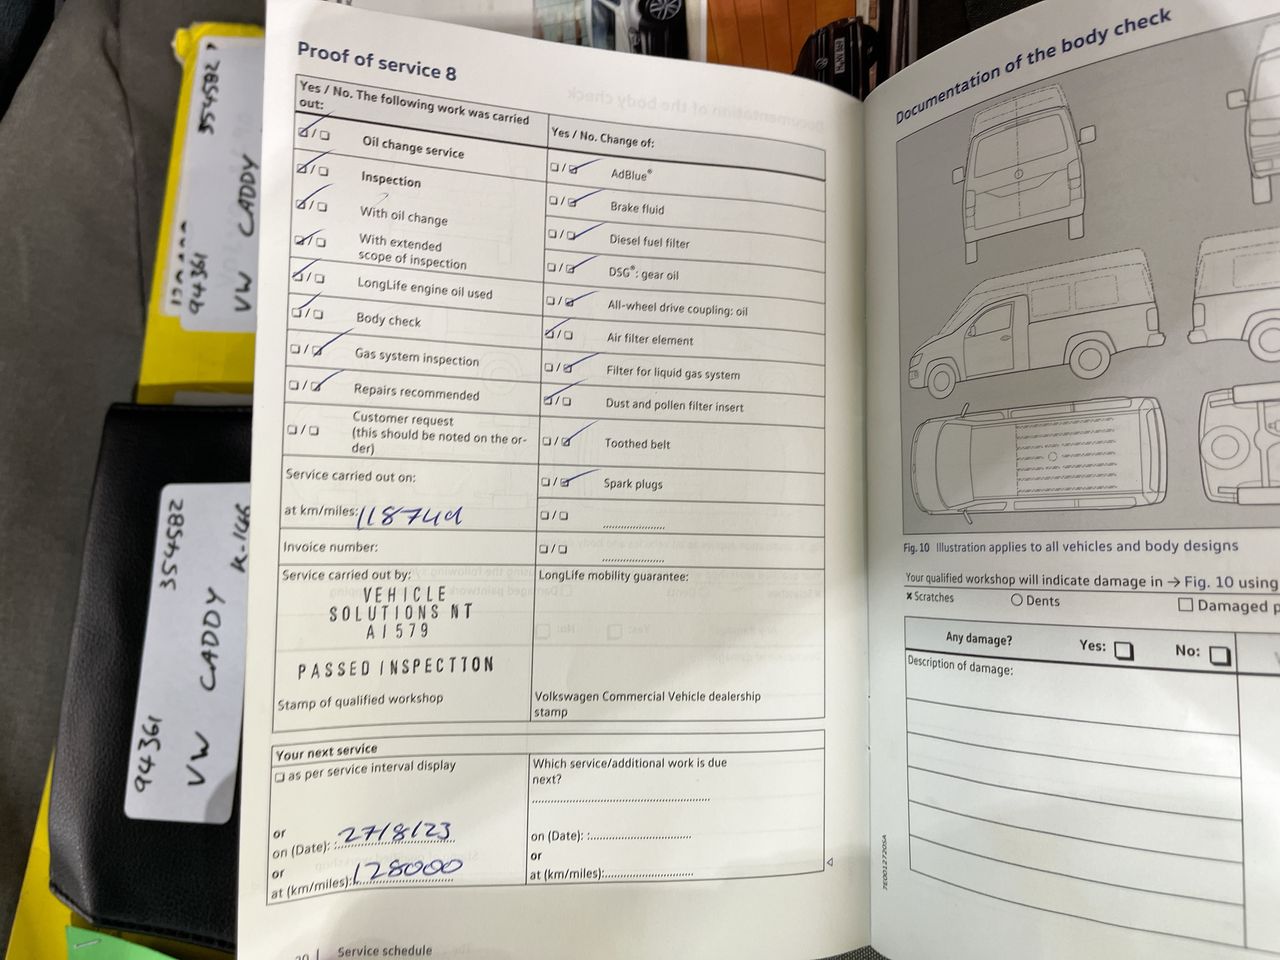 Proof of service 8
Yes / No. The following work was carried
out:
Oil change service
Inspection
With oil change
With extended
scope of inspection
LongLife engine oil used
Body check
Gas system inspection
Repairs recommended
Customer request
(this should be noted on the or-
der)
Service carried out on:
at km/miles: 118749
Invoice number:
Service carried out by:
VEHICLE
SOLUTIONS NT
A1579
PASSED INSPECTION
Stamp of qualified workshop
Yes / No. Change of:
AdBlue®
Brake fluid
Diesel fuel filter
DSG®: gear oil
All-wheel drive coupling: oil
Air filter element
Filter for liquid gas system
Dust and pollen filter insert
Toothed belt
Spark plugs
LongLife mobility guarantee:
Volkswagen Commercial Vehicle dealership
stamp
Your next service
as per service interval display
or
on (Date): 27/8/23
or
at (km/miles): 128000
Which service/additional work is due
next?
on (Date):
or
at (km/miles):
Service schedule
Documentation of the body check
Fig. 10 Illustration applies to all vehicles and body designs
Your qualified workshop will indicate damage in → Fig. 10 using
× Scratches
Dents
Damaged p
Any damage? Yes: No:
Description of damage:
7E0012720SA
354582
94361
VW CADDY
354582
K-146
94361
VW CADDY